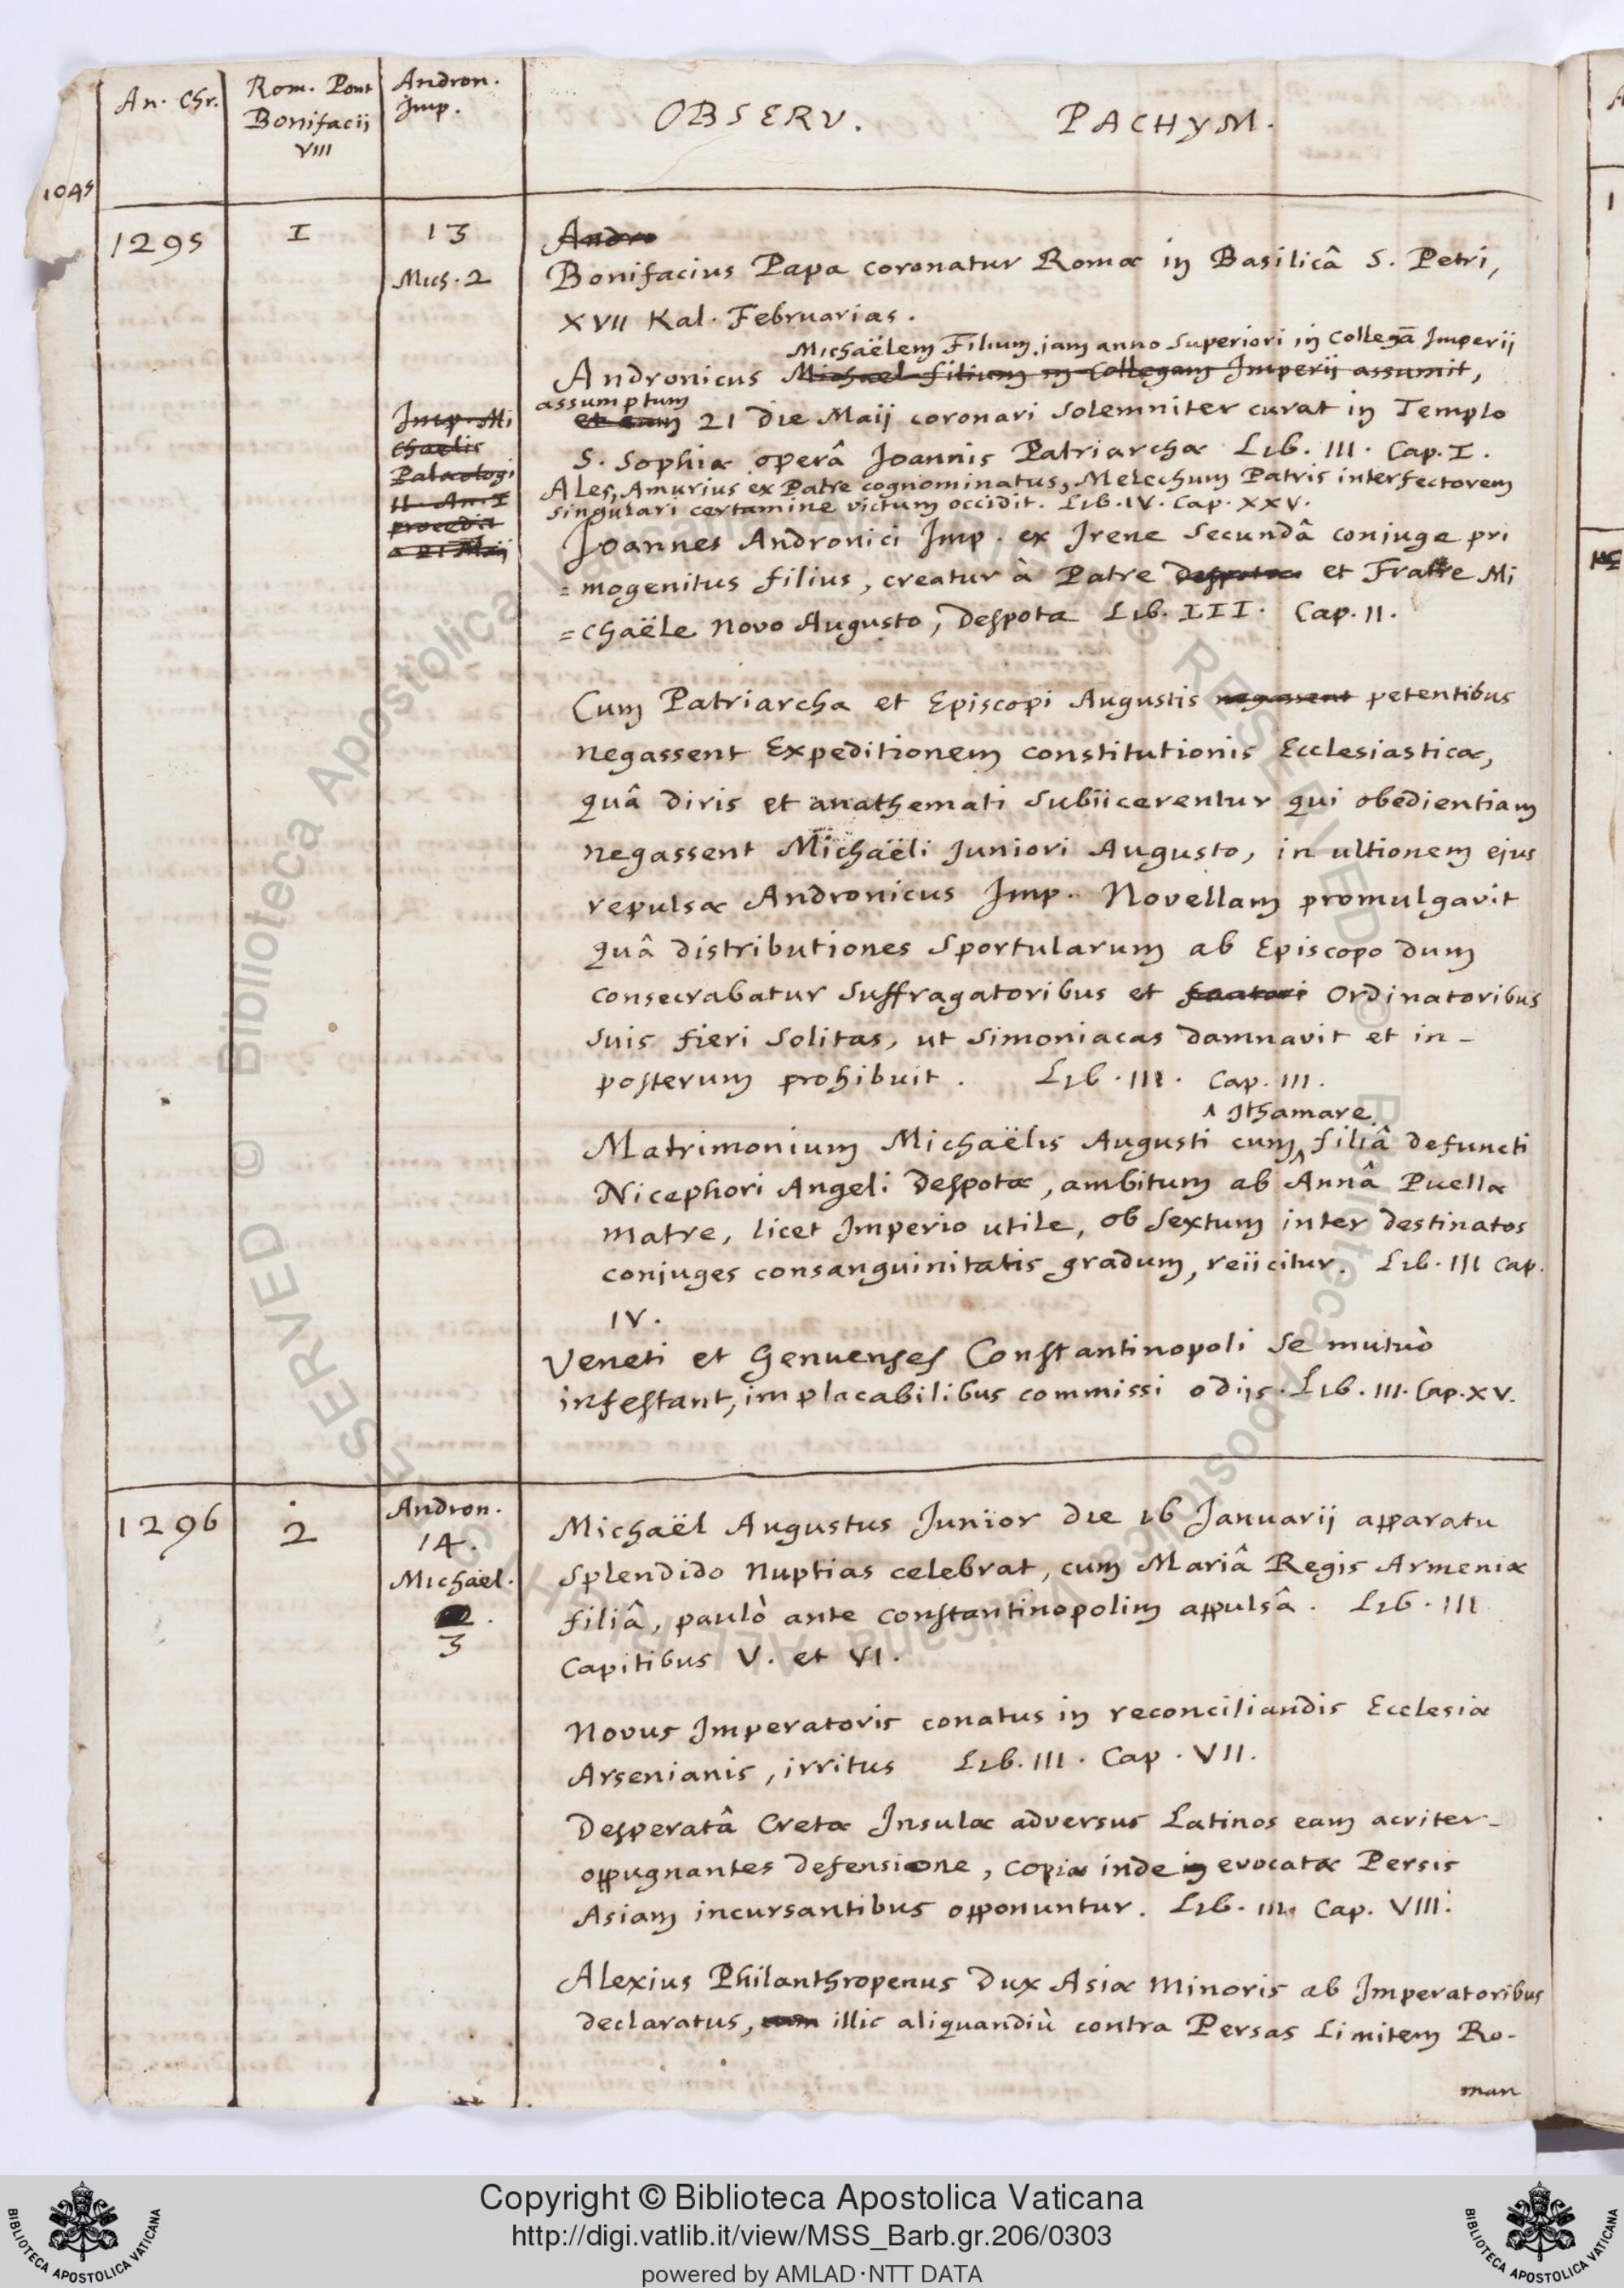 An. Chr.
Rom. Pont
Bonifacij
VIII
Andron.
Imp.
OBSERV. PACHYM.
1045
1295
I
13
Mich. 2
Imp. Mi
chaelis
Palaeologi
II. An. I
procedit
a 21 Maij
Andro
Bonifacius Papa coronatur Romæ in Basilicâ S. Petri,
XVII Kal. Februarias.
Michaëlem Filium jam anno superiori in Collegā Imperij
Andronicus Michael filium in Collegam Imperij assumit,
assumptum
et eum 21 die Maij coronari solemniter curat in Templo
S. Sophiæ operâ Joannis Patriarchæ Lib. III. Cap. I.
Ales, Amurius ex Patre cognominatus, Melechum Patris interfectorem
singulari certamine victum occidit. Lib. IV. Cap. XXV.
Joannes Andronici Imp. ex Irene secundâ conjuge pri
=mogenitus filius, creatur à Patre despota et Fratre Mi
=chaële novo Augusto, Despota Lib. III. Cap. II.
Cum Patriarcha et Episcopi Augustis negassent petentibus
negassent Expeditionem constitutionis Ecclesiasticæ,
quâ diris et anathemati subiicerentur qui obedientiam
negassent Michaëli Juniori Augusto, in ultionem ejus
repulsæ Andronicus Imp. Novellam promulgavit
quâ distributiones sportularum ab Episcopo dum
consecrabatur suffragatoribus et Ordinatoribus
suis fieri solitas, ut simoniacas damnavit et in-
posterum prohibuit. Lib. III. Cap. III.
^ Ithamare
Matrimonium Michaëlis Augusti cum ^ filiâ defuncti
Nicephori Angeli Despotæ, ambitum ab Annâ Puellæ
matre, licet Imperio utile, ob sextum inter destinatos
conjuges consanguinitatis gradum, reiicitur. Lib. III Cap.
IV.
Veneti et Genuenses Constantinopoli se mutuò
infestant, implacabilibus commissi odijs. Lib. III. Cap. XV.
1296
2
Andron.
14.
Michael.
2.
3
Michaël Augustus Junior die 16 Januarij apparatu
splendido nuptias celebrat, cum Mariâ Regis Armeniæ
filiâ, paulò ante Constantinopolim appulsâ. Lib. III
Capitibus V. et VI.
Novus Imperatoris conatus in reconciliandis Ecclesiæ
Arsenianis, irritus Lib. III. Cap. VII.
Desperatâ Cretæ Insulæ adversus Latinos eam acriter-
oppugnantes defensione, copiæ inde in evocatæ Persis
Asiam incursantibus opponuntur. Lib. III. Cap. VIII.
Alexius Philanthropenus Dux Asiæ Minoris ab Imperatoribus
declaratus, cum illic aliquandiù contra Persas Limitem Ro-
man
Copyright © Biblioteca Apostolica Vaticana
http://digi.vatlib.it/view/MSS_Barb.gr.206/0303
powered by AMLAD·NTT DATA
BIBLIOTECA APOSTOLICA VATICANA
BIBLIOTECA APOSTOLICA VATICANA